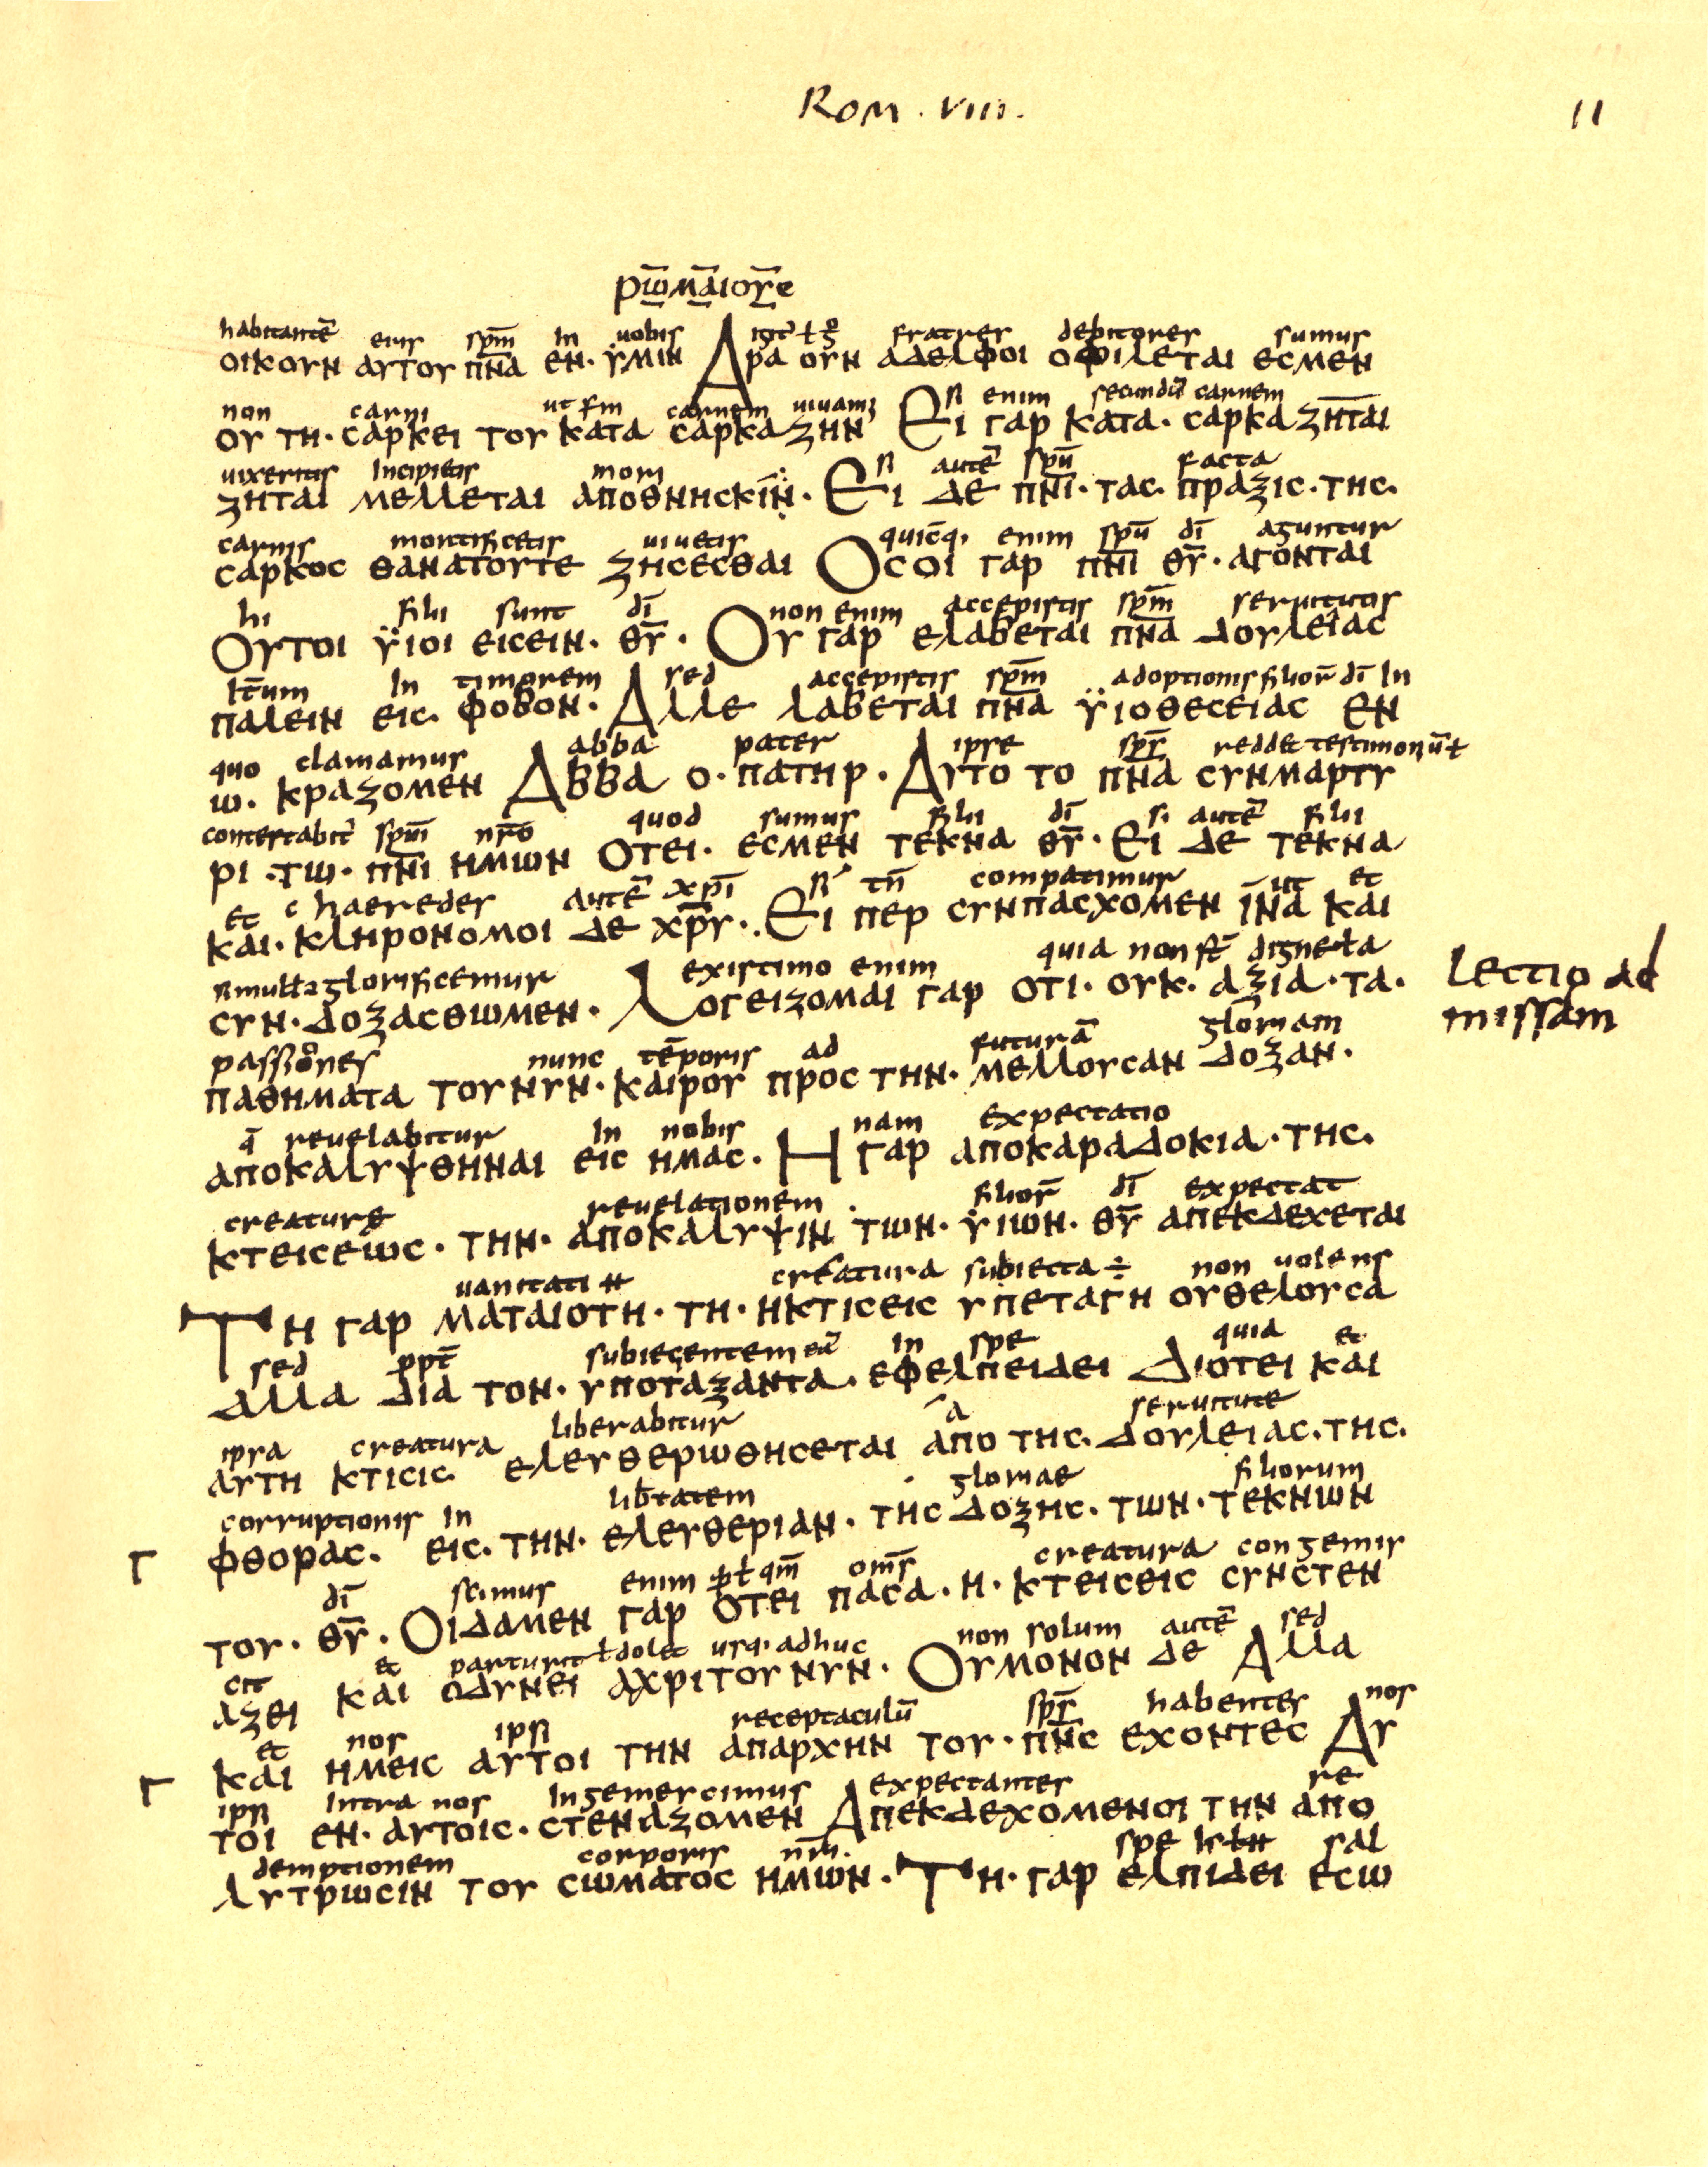 Rom. VIII.
11
ρωμαιουc
habitantē eius spm̄ In uobis fratres debitores sumus
οικουν αυτου π̅ν̅α εν· ϋμιν Αρα ουν αδελφοι οφιλεται εcμεν
non carni carnem uiuam; si enim secundū carnem
ου τη· cαρκει του κατα cαρκα ζην Ει γαρ κατα· cαρκα ζηται
uixeritis Incipietis mori si autē spū facta
ζηται μελλεται αποθνηcκιν· Ει δε π̅ν̅ι· ταc· πραξιc· τηc·
carnis mortificetis uiuetis enim spū dī aguntur
cαρκοc θανατουτε ζηcεcθαι Οcοι γαρ π̅ν̅ι θ̅υ̅· αγονται
hi filii sunt dī non enim accepistis spm̄ seruitutis
Ουτοι ϋιοι ειcειν· θ̅υ̅· Ου γαρ ελαβεται π̅ν̅α δουλειαc
In timorem sed accepistis spm̄ adoptionis filior̄ dī In
παλειν ειc· φοβον· Αλλε λαβεται π̅ν̅α ϋιοθεcειαc εν
quo clamamus abba pater ipse sps̄
ω· κραζομεν Αββα ο· πατηρ· Αυτο το π̅ν̅α cυνμαρτυ
quod sumus filii dī si autē filii
ρι· τω· π̅ν̅ι ημιων Οτει· εcμεν τεκνα θ̅υ̅· Ει δε τεκνα
et c haeredes autē xpī si tn̄ compatimur ut et
και· κληρονομοι δε χ̅ρ̅υ̅· Ει περ cυνπαcχομεν ϊνα και
existimo enim quia non
cυν· δοξαcθωμεν· Λογειζομαι γαρ οτι· ουκ· αξια· τα·
Lectio ad
missam
passiones nunc tēporis ad futurā gloriam
παθηματα του νυν· καιρου προc την· μελλουcαν δοξαν·
q̄ reuelabitur In nobis nam expectatio
αποκαλυψθηναι ειc ημαc· Η γαρ αποκαραδοκια· τηc·
creature reuelationem filior̄ dī expectat
κτειcεωc· την· αποκαλυψιν των· ϋιων· θ̅υ̅ απεκδεχεται
uanitati creatura subiecta ÷ non uolens
Τη γαρ ματαιοτη· τη· ηκτιcειc υπεταγη ουθελουcα
sed ppt̄ subiecientem eū In spe quia et
αλλα δια τον· υποταξαντα· εφελπειδει Διοτει και
ipsa creatura liberabitur a seruitute
αυτη κτιcιc· ελευθερωθηcεται απο τηc· δουλειαc· τηc·
corruptionis In libtatem gloriae filiorum
Γ φθοραc· ειc· την· ελευθεριαν· τηc δοξηc· των· τεκνων
dī scimus enim oms̄ creatura congemis
του· θ̅υ̅· Οιδαμεν γαρ οτει παcα· η· κτειcειc cυνcτεν
cit et parturit ł dolet usq; adhuc non solum autē sed
αζει και ωδυνει αχριτου νυν· Ουμονον δε Αλλα
et nos ipsi receptaculū sps̄ habentes nos
και ημειc αυτοι την απαρχην του· π̅ν̅c εχοντεc Αυ
ipsi Intra nos Ingemercimus expectantes re
Γ τοι εν· αυτοιc· cτεναζομεν Απεκδεχομενοι την απο
demptionem corporis spe sal
λυτριωcιν του cωματοc ημιων· Τη· γαρ ελπιδει εcω